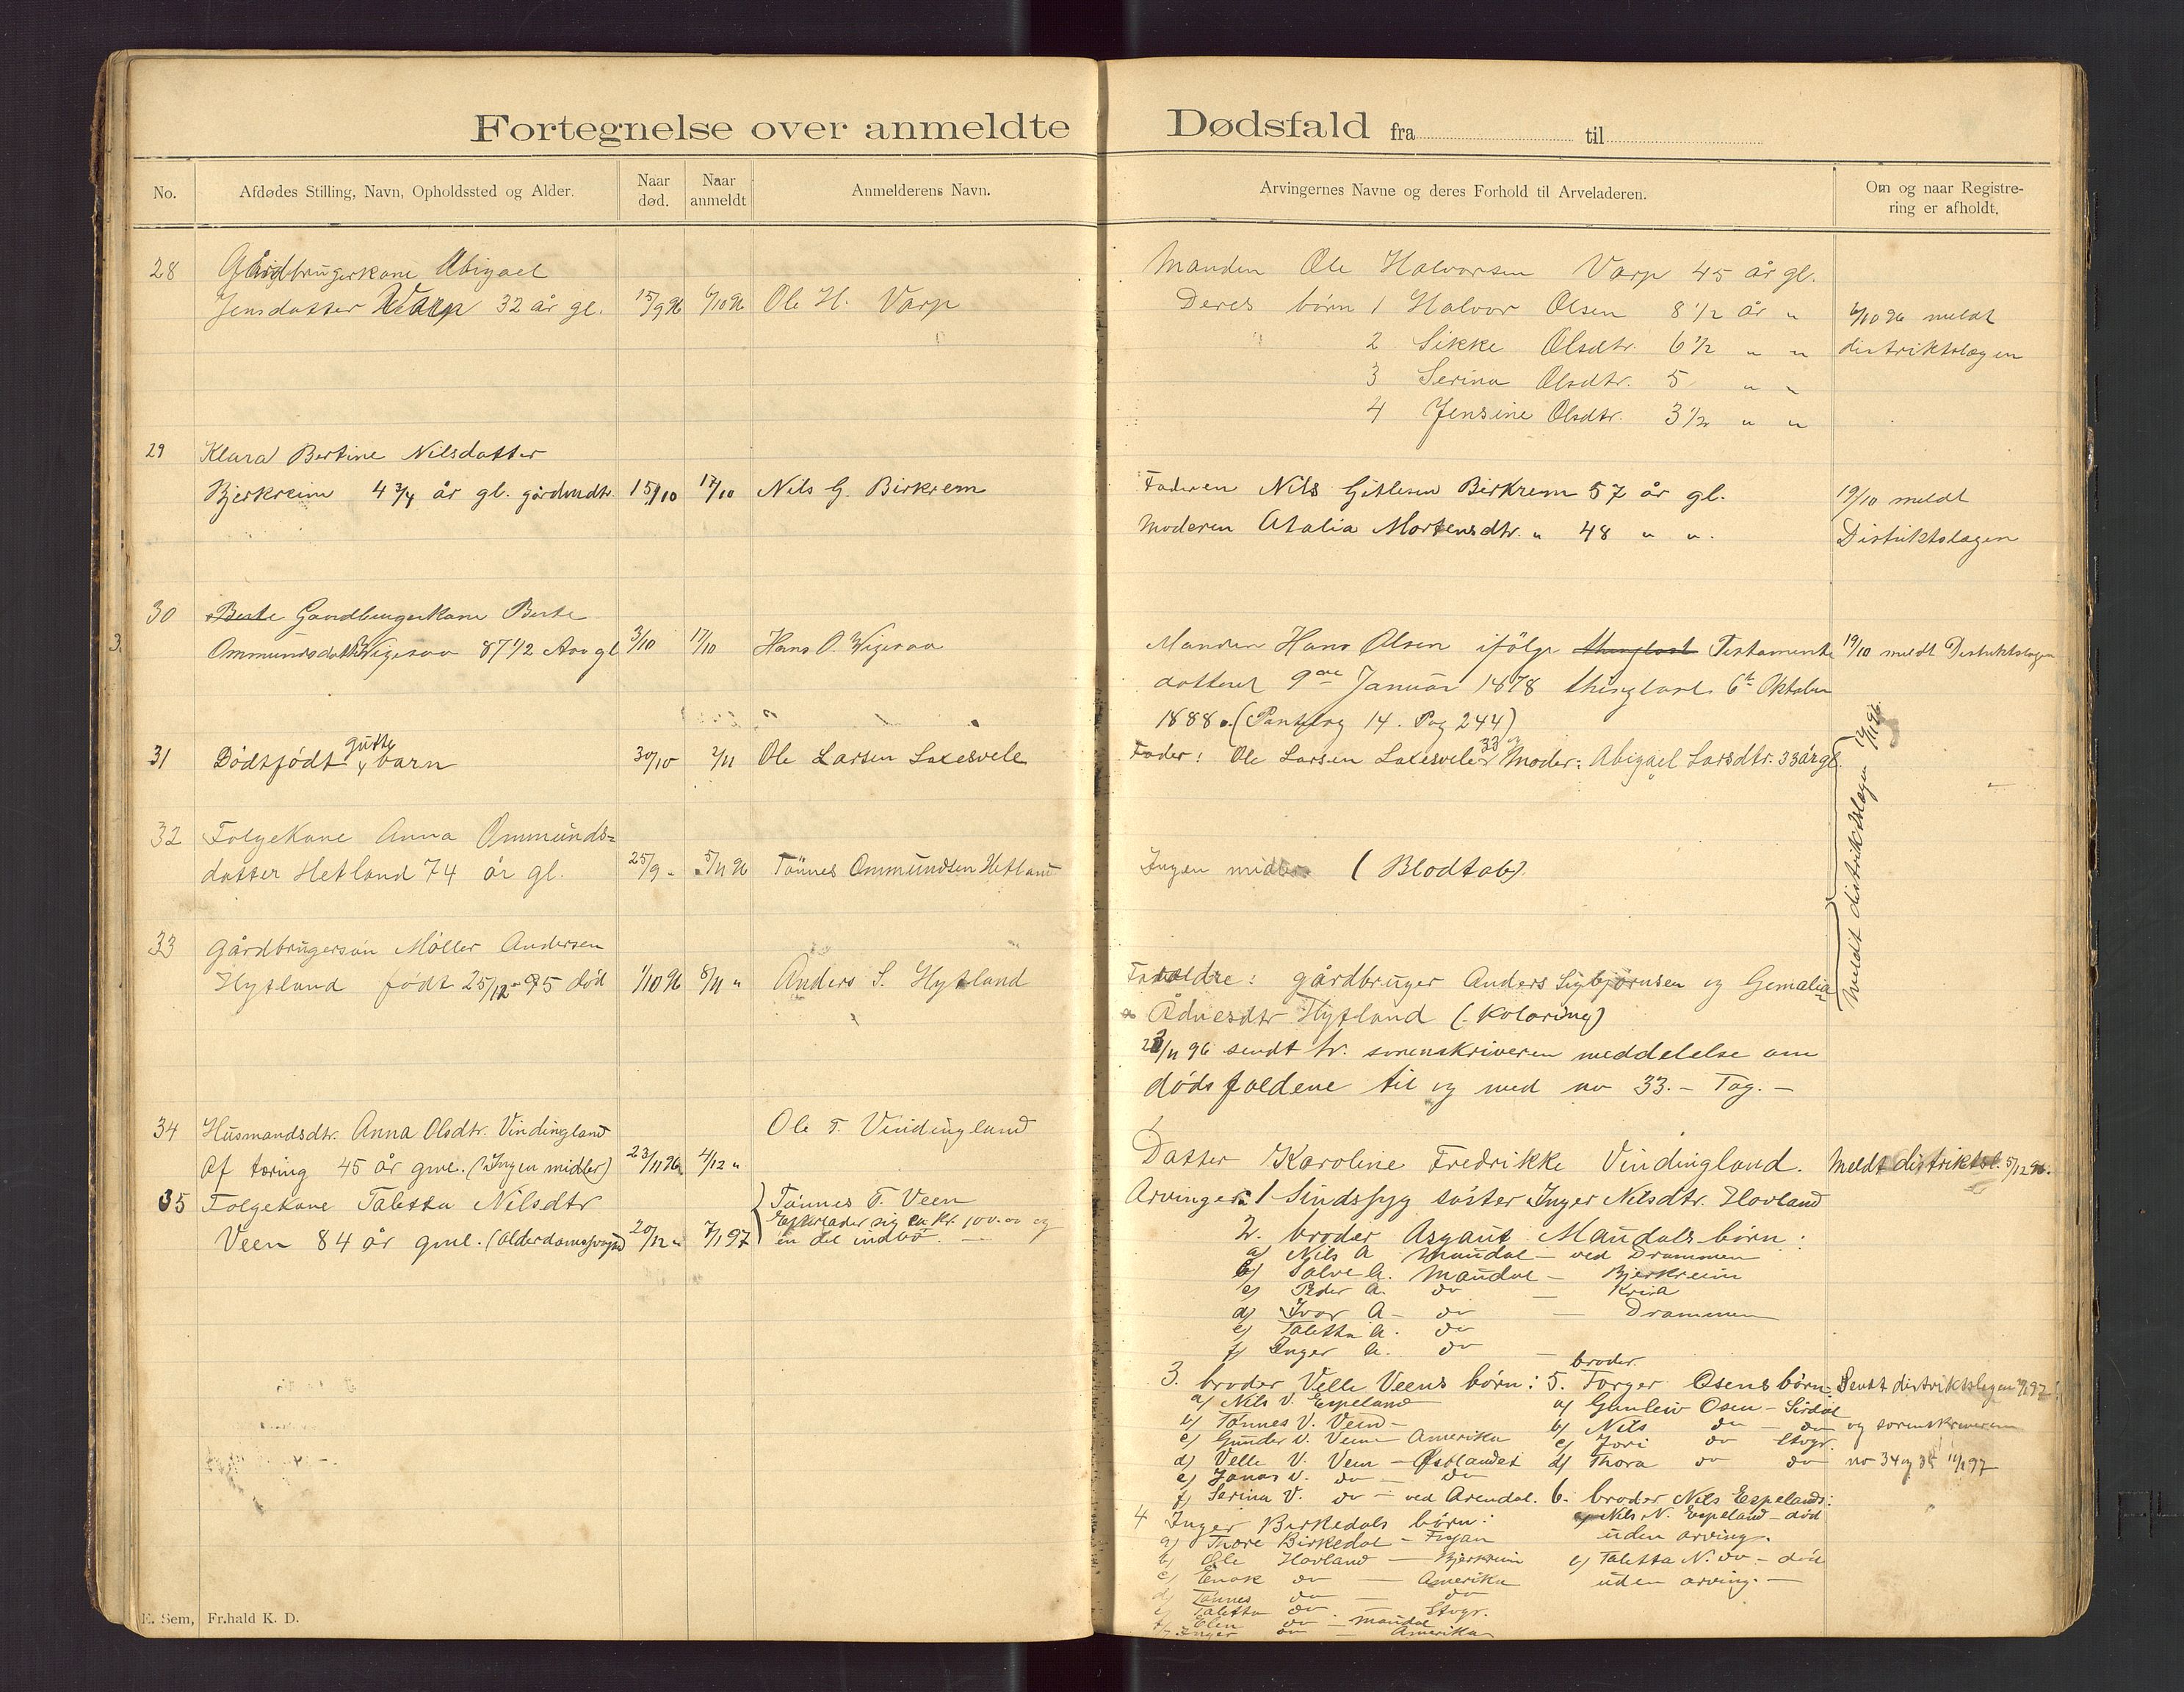 Fortegnelse over anmeldte Dødsfald fra til
No.
Afdødes Stilling, Navn, Opholdssted og Alder.
Naar død.
Naar anmeldt
Anmelderens Navn.
Arvingernes Navne og deres Forhold til Arveladeren.
Om og naar Registre-
ring er afholdt.
28 Gårdbrugerkone Abigael
Jensdatter Varp 32 år gl. 15/9 96 6/10 96 Ole H. Varp
Manden Ole Halvorsen Varp 45 år gl.
Deres børn 1 Halvor Olsen 8 1/2 år "
2 Sikke Olsdtr. 6 1/2 " "
3 Serina Olsdtr. 5 " "
4 Jensine Olsdtr. 3 1/2 " "
6/10 96 meldt
distriktslægen
29 Klara Bertine Nilsdatter
Bjerkreim 4 3/4 år gl. gårdmdtr. 15/10 17/10 Nils G. Birkrem
Faderen Nils Gitlesen Birkrem 57 år gl.
Moderen Atalia Mortensdtr. " 48 " "
19/10 meldt
Distriktslægen
30 Berte Gaardbrugerkone Berte
Ommundsdatter Wigesaa 87 1/2 Aar gl 3/10 17/10 Hans O. Wigesaa
Manden Hans Olsen ifölge thinglæst Testamente
datteret 9de Januar 1878 thinglæst 6te Oktober
1888. (Pantreg 14. Pag 244)
19/10 meldt Distriktslægen
31 Dödfjödt gutte barn 30/10 2/11 Ole Larsen Laxesvele
Fader: Ole Larsen Laxesvele 33 og Moder: Abigael Larsdtr. 33 år gl.
32 Folgekone Anna Ommunds=
datter Hetland 74 år gl. 25/9 - 5/11 96 Tönnes Ommundsen Hetland
Ingen midler (Blodtab)
meldt distriktslægen 12/11 96.
33 Gårdbrugersøn Möller Andersen
Hytland født 25/12 - 95 död 1/10 96 8/11 " Anders S. Hytland
Forældre: gårdbruger Anders Sigbjørnsen og Gemalia
Ådnesdtr Hytland (Kolering)
23/11 96 sendt hr. sorenskriveren meddelelse om
dödsfaldene til og med no 33. - Tag. -
34 Husmandsdtr. Anna Olsdtr. Vindingland
Af tæring 45 år gml. (Ingen midler) 23/11 96 4/12 "
Ole T. Vindingland
Datter Karoline Fredrikke Vindingland.
Meldt distriktsl. 5/12 96.
35 Folgekone Taletta Nilsdtr
Veen 84 år gml. (Alderdomssvaghd) 20/12 " 7/1 97
Tönnes T. Veen
Efterlader sig ca kr. 100.00 og
en del indbo.
Arvinger: 1 Sindssyg söster Inger Nilsdtr. Hovland
2. broder Asgaut Maudals børn:
a) Nils A Maudal - ved Drammen
b) Salve A. Maudal - Bjerkreim
c) Peder A. do - Kria
d) Ivar A - do - Drammen
e) Taletta A. do
f) Inger A. do
3. broder Velle Veens börn:
a) Nils V. Espeland
b) Tönnes V. Veen -
c) Gunder V. Veen - Amerika
d) Velle V. Veen - Østlandet
e) Jonas V. do - do
f) Serina V. do - ved Arendal.
4 Inger Birkedals børn:
a) Thore Birkedal - Fojan
b) Ole Hovland - Bjerkreim
c) Enok do - Amerika
d) Tönnes do - do
e) Taletta do - Stvgr.
f) Elen do - Maudal
g) Inger do - Amerika
broder
5. Torger Osens börn:
a) Gunleiv Osen - Sirdal
b) Nils do - do
c) Jori do Stvgr.
d) Thora do do
6. broder Nils Espelands:
a) Nils N. Espeland - död
uden arving.
c) Taletta N. do - död
uden arving. -
Sendt distriktslægen
og sorenskriveren
no 34 og 35 11/1 97
E. Sem, Fr.hald K. D.